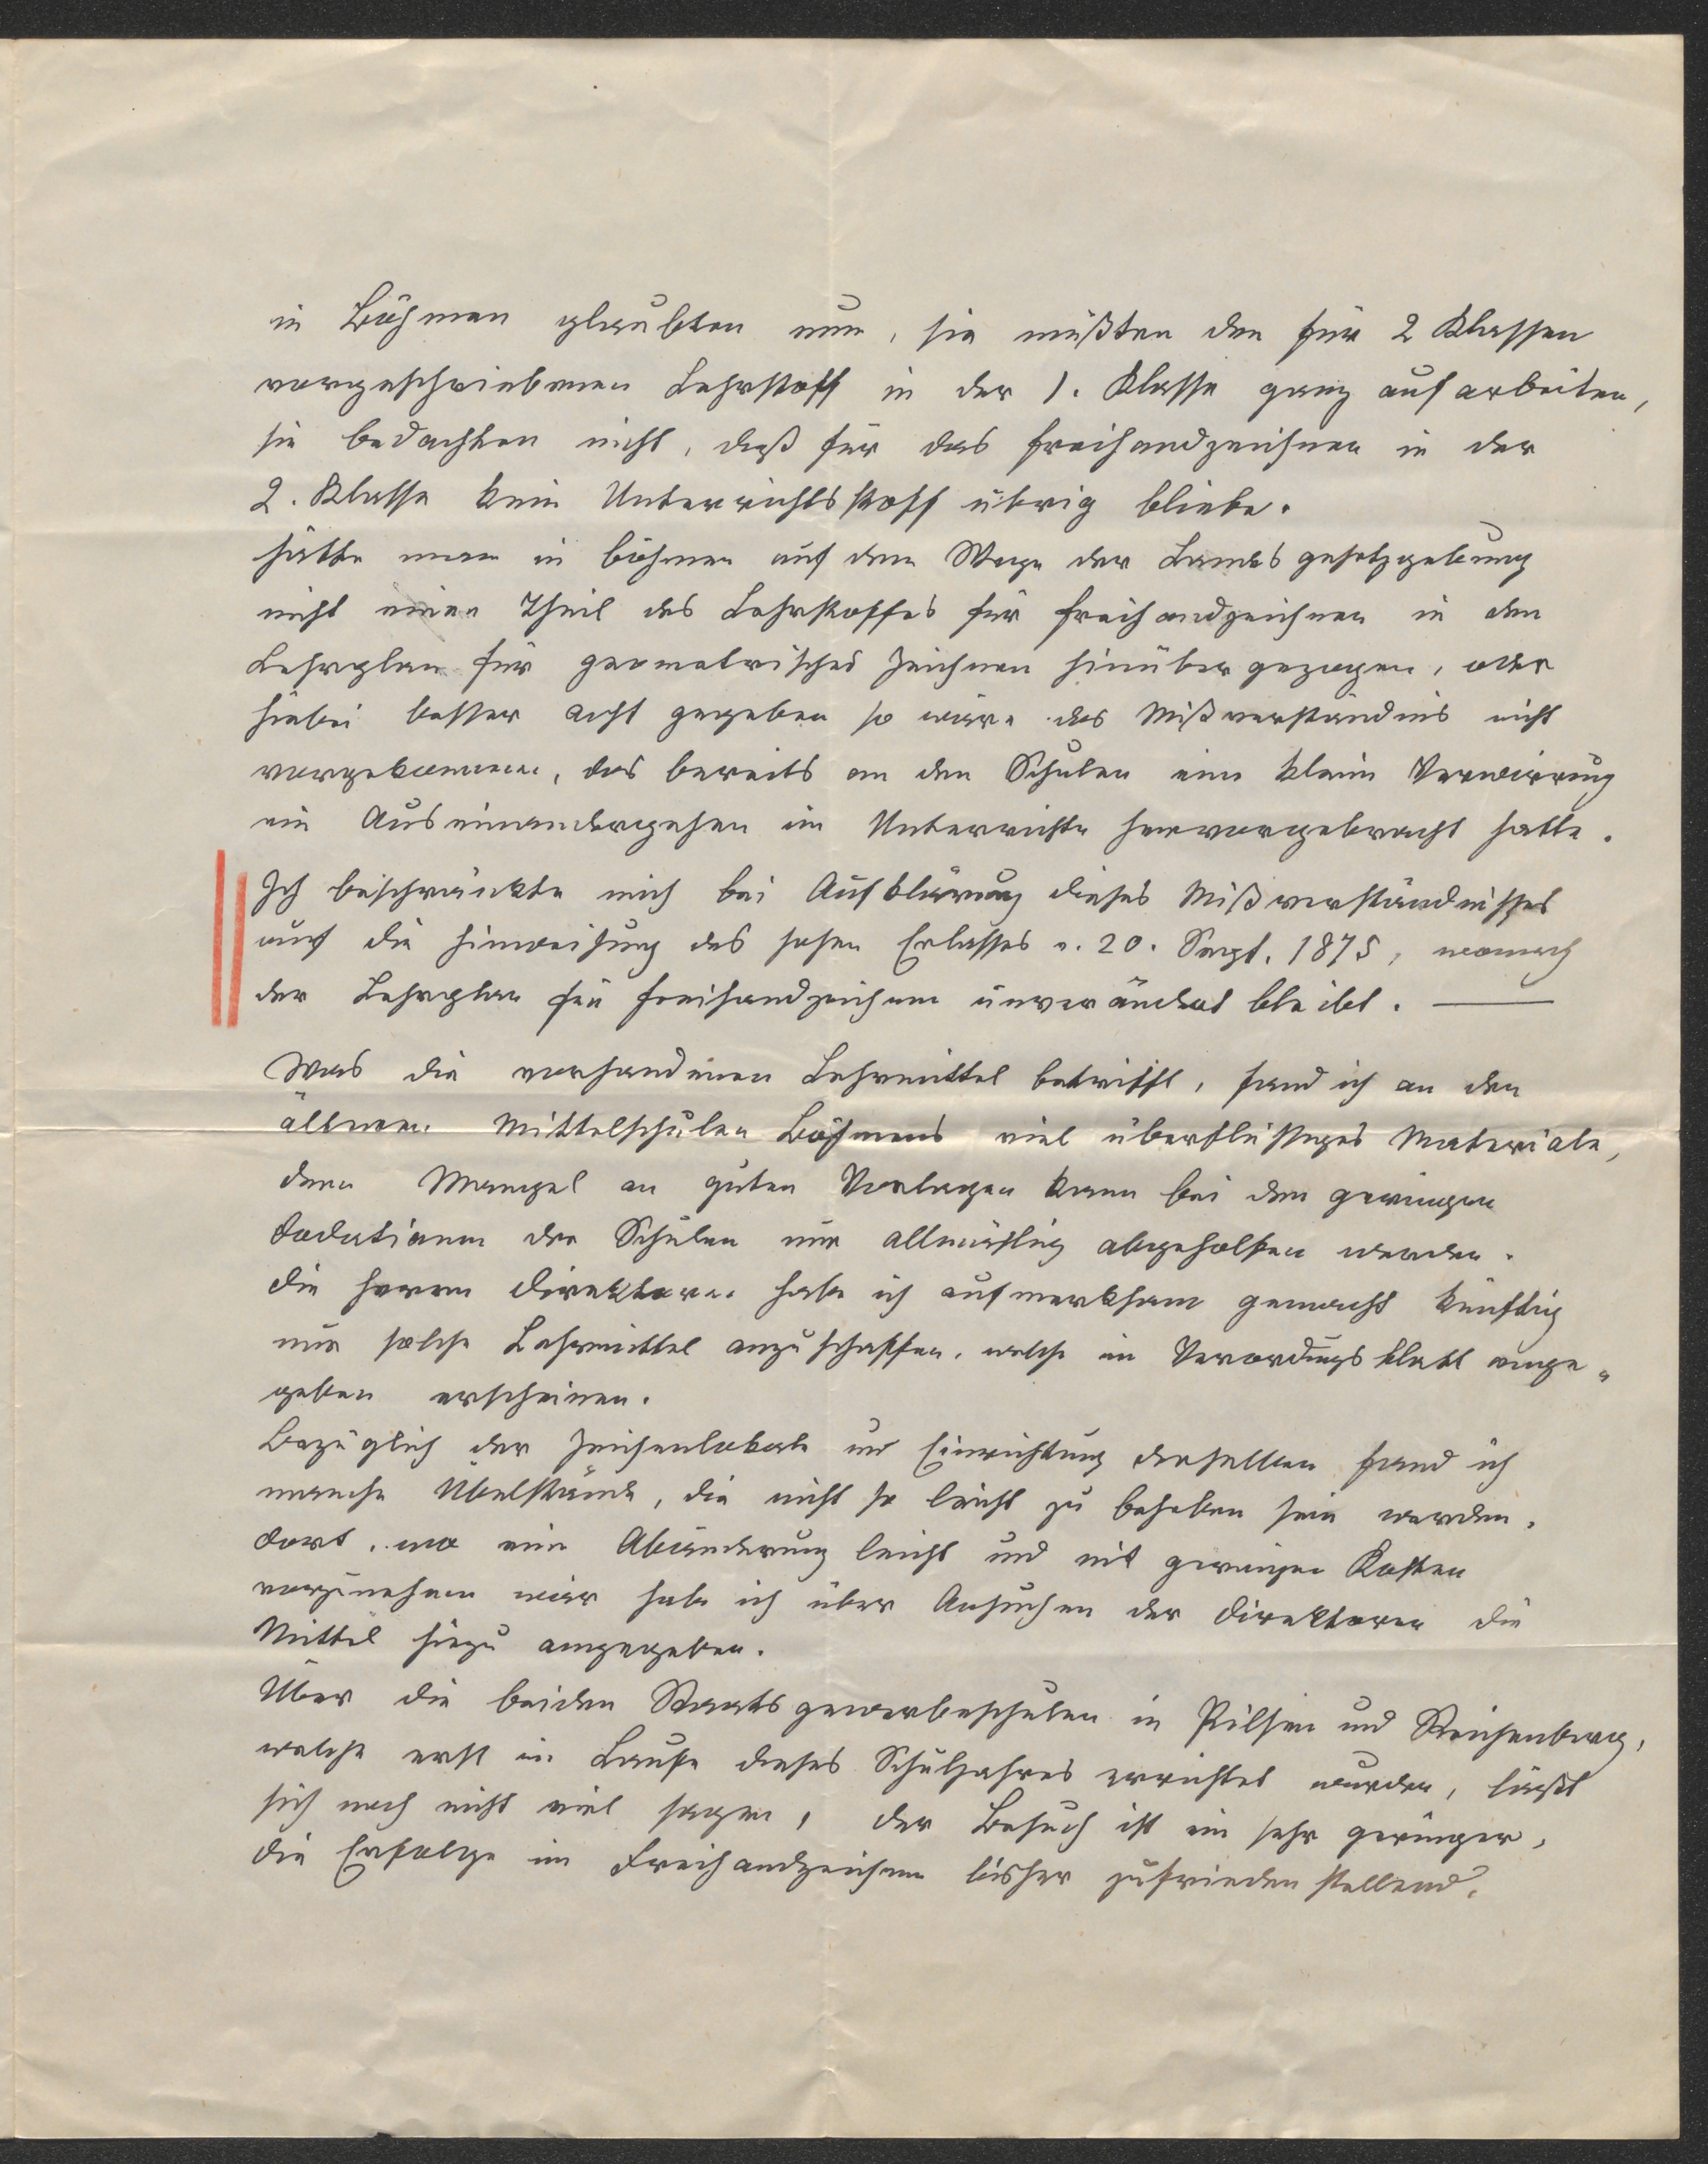 in Böhmen glaubten nun, sie müßten den für 2 Klassen
vorgeschriebenen Lehrstoff in der 1. Klasse ganz aufarbeiten,
sie bedachten nicht, daß für das Freihandzeichnen in der
2. Klasse kein Unterrichtsstoff übrig bliebe.
Hätte man in Böhmen auf dem Wege der Landesgesetzgebung
nicht einen Theil des Lehrstoffes für Freihandzeichnen in den
Lehrplan für geometrisches Zeichnen hinübergezogen, oder
hiebei besser acht gegeben so wäre das Mißverständnis nicht
vorgekommen, das bereits an den Schulen eine kleine Verwirrung
ein Auseinandergehen im Unterrichte hervorgebracht hatte.
Ich beschränkte mich bei Aufklärung dieses Mißverständnisses
auf die Hinweisung des hohen Erlasses v. 20. Sept. 1875, wonach
der Lehrplan für Freihandzeichnen unverändert bleibt. —
Was die vorhandenen Lehrmittel betrifft, fand ich an den
älteren Mittelschulen Böhmens viel überflüssiges Materiale,
dem Mangel an guten Vorlagen kann bei den geringen
Dotationen der Schulen nur allmählig abgeholfen werden.
Die Herren Direktoren habe ich aufmerksam gemacht künftig
nur solche Lehrmittel anzuschaffen, welche im Verordungsblatt ange„
geben erscheinen.
Bezüglich der Zeichenlokale und Einrichtung derselben fand ich
manche Übelstände, die nicht so leicht zu beheben sein werden.
Dort, wo eine Abänderung leicht und mit geringen Kosten
vorzunehmen wäre habe ich über Ansuchen der Direktoren die
Mittel hiezu angegeben.
Über die beiden Staatsgewerbeschulen in Pilsen und Reichenberg,
welche erst im Laufe dieses Schuljahres errichtet wurden, läßt
sich noch nicht viel sagen, der Besuch ist ein sehr geringer,
die Erfolge im Freihandzeichnen bisher zufriedenstellend.